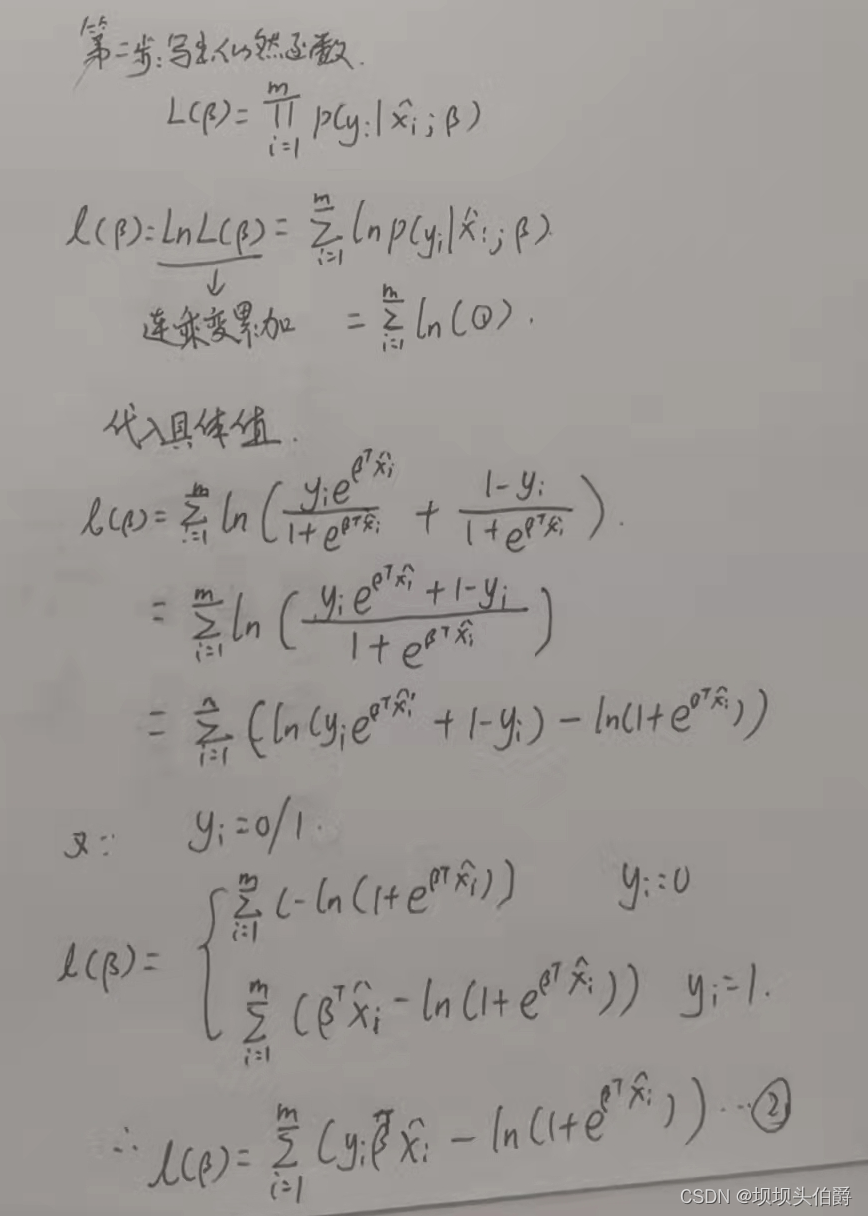 第二步:写出似然函数.
L(β)=∏_{i=1}^{m} p(y_i|x̂_i;β)
l(β)=LnL(β)=∑_{i=1}^{m} ln p(y_i|x̂_i;β)
↓
连乘变累加 =∑_{i=1}^{m} ln(①).
代入具体值.
l(β)=∑_{i=1}^{m} ln( y_i e^{β^T x̂_i} / (1+e^{β^T x̂_i}) + (1-y_i) / (1+e^{β^T x̂_i}) ).
=∑_{i=1}^{m} ln( (y_i e^{β^T x̂_i}+1-y_i) / (1+e^{β^T x̂_i}) )
=∑_{i=1}^{n} (ln(y_i e^{β^T x̂_i}+1-y_i)-ln(1+e^{β^T x̂_i}))
又∵ y_i=0/1.
∑_{i=1}^{m} (-ln(1+e^{β^T x̂_i})) y_i=0
l(β)= {
∑_{i=1}^{m} (β^T x̂_i-ln(1+e^{β^T x̂_i})) y_i=1.
∴ l(β)=∑_{i=1}^{m} (y_i β^T x̂_i-ln(1+e^{β^T x̂_i})) ...②
CSDN @坝坝头伯爵